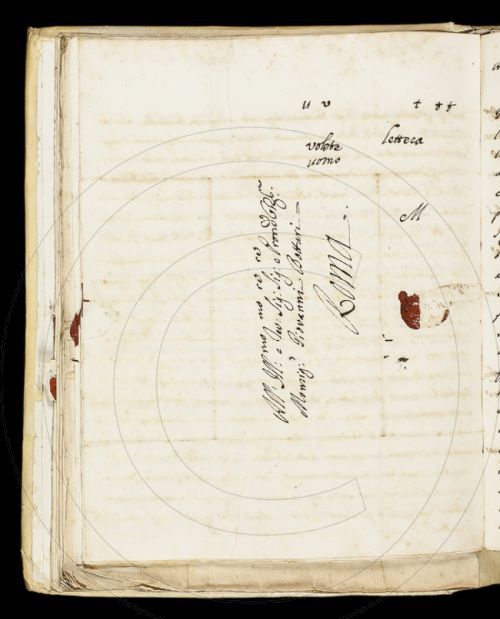 u v t tt
volete lettera
uomo
M
All' Ill:mo e Rev: Sig: Sig: e Pron
Monsig: Giovanni Bottari
Roma